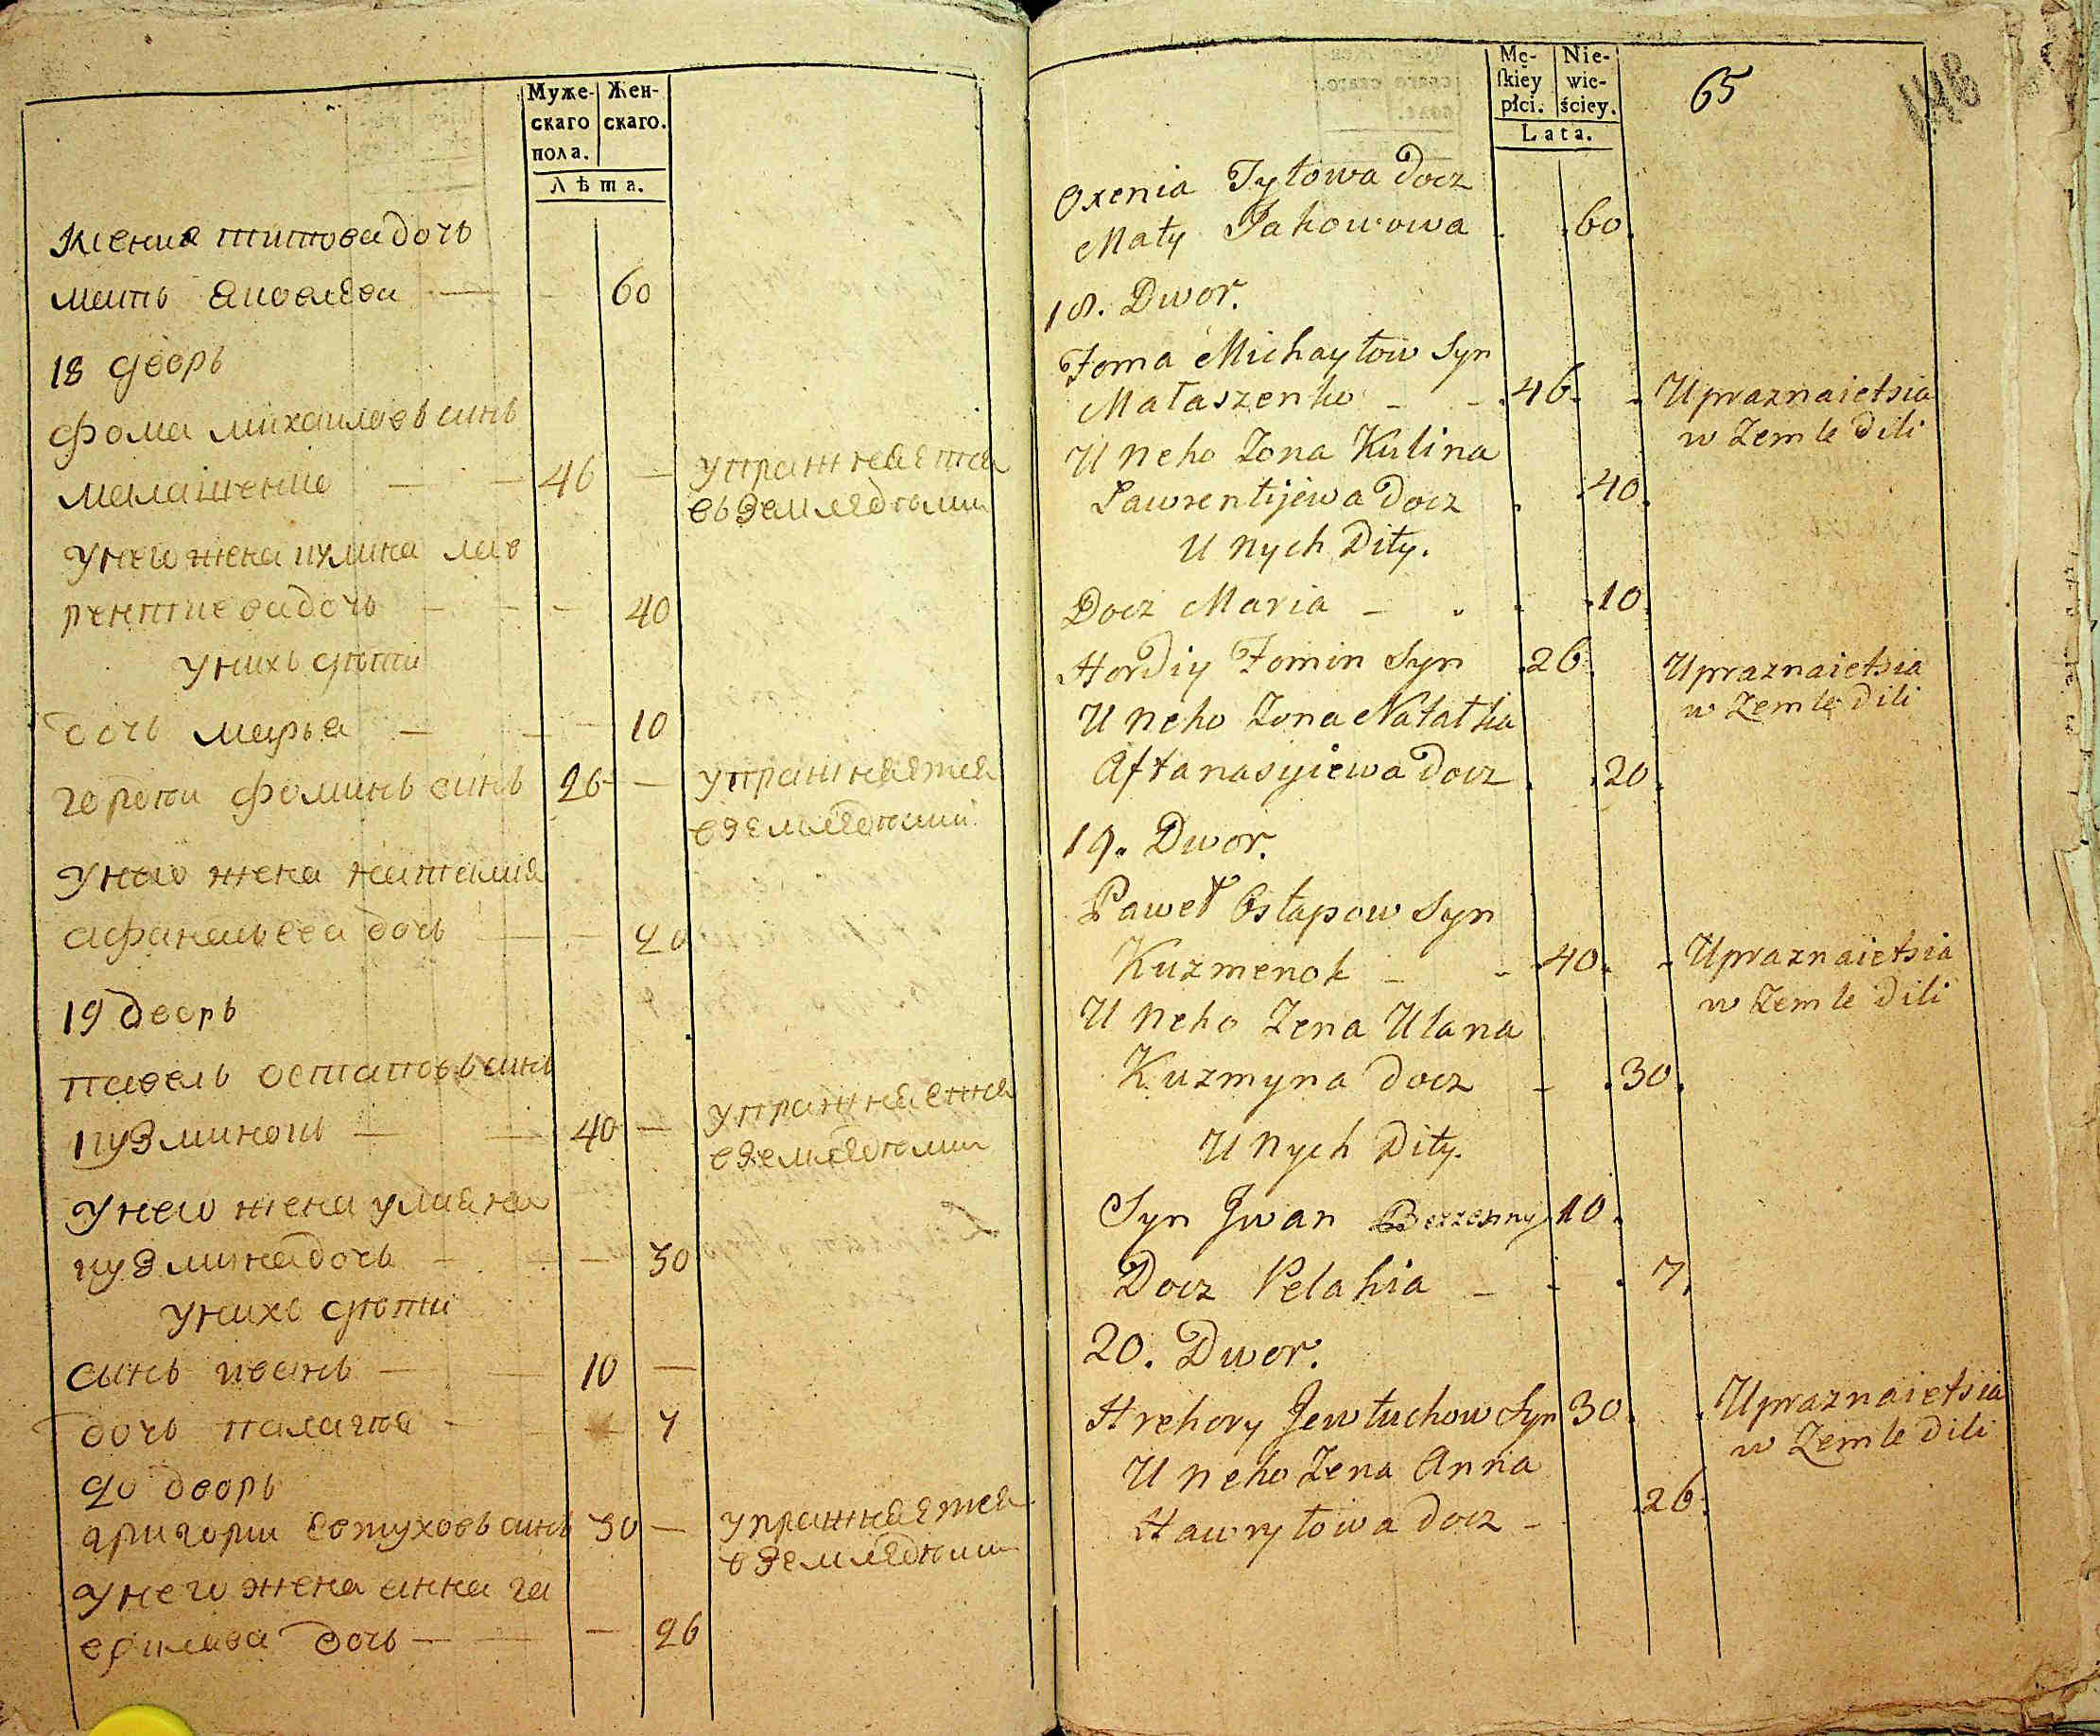 Муже- Жен-
скаго скаго.
пола.
Лѣта.
Ксения титова дочь
мать Яковлева — — 60
18 дворъ
Фома михаиловъ синъ
малашенко — — 46 — упражняется
въ Земледѣлии
Унего жена кулина лав
рентиева дочь — — — 40
унихъ дѣти
дочь марья — — — 10
гордѣи фоминъ синъ 26 — упражняется
в земледѣлии
Унего жена наталия
афанасьева дочь — — 20
19 дворъ
павелъ остаповъ синъ
кузминокъ — — 40 — упражняется
в земледѣлии
Унего жена улияна
кузмина дочь — — — 30
унихъ дѣти
синъ иванъ — — 10 —
дочь палагѣя — — 7
20 дворъ
григории евтуховъ синъ 30 — упражняется
в Земледѣлии
Унего жена анна га
врилова дочь — — — 26
Mę- Nie-
skiey wie-
płci. ściey.
Lata.
65
148
Oxenia Tytowa Docz
Maty Jakowowa 60.
18. Dwor.
Foma Michayłow Syn
Małaszenko - - 46. - Upraznaietsia
w Zemle Dili
U Neho Zona Kulina
Lawrentijewa Docz 40.
U Nych Dity.
Docz Maria - 10.
Hordiy Fomin Syn 26. Upraznaietsia
w Zemle Dili
U Neho Zona Natałka
Aftanasyiewa Docz 20.
19. Dwor.
Paweł Ostapow Syn
Kuzmenok - - 40. - Upraznaietsia
w Zemle Dili
U Neho Zena Ulana
Kuzmyna Docz - 30.
U Nych Dity.
Syn Jwan Bezzenny 10.
Docz Pelahia - 7.
20. Dwor.
Hrehory Jewtuchow Syn 30. Upraznaietsia
w Zemle Dili
U Neho Zena Anna
Hawryłowa Docz - 26.